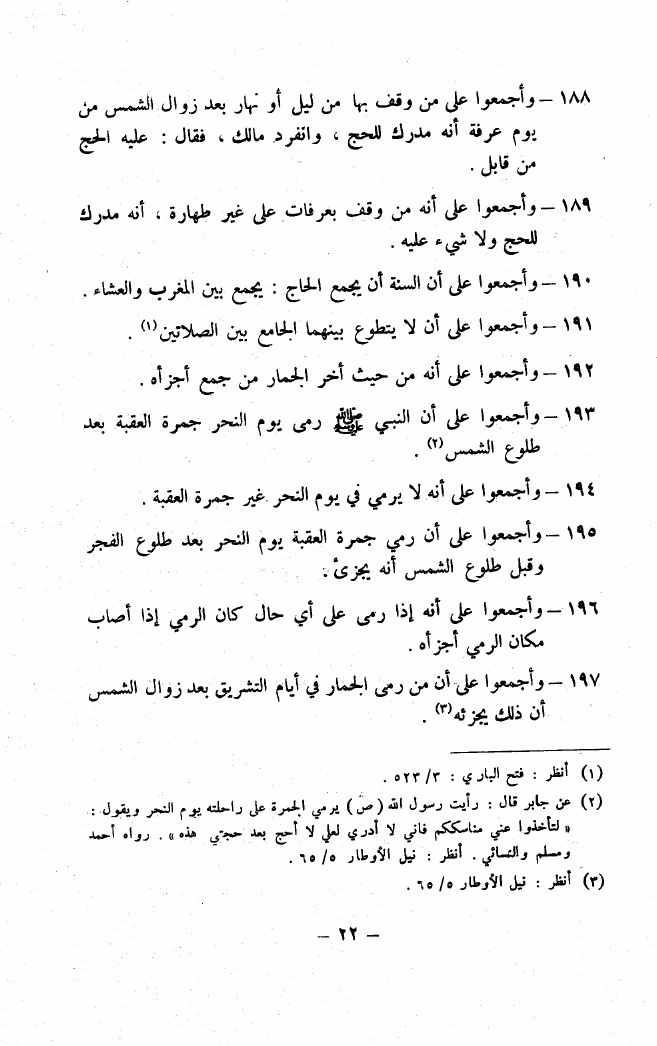 ١٨٨ – وأجمعوا على من وقف بها من ليل أو نهار بعد زوال الشمس من
يوم عرفة أنه مدرك للحج ، وانفرد مالك ، فقال : عليه الحج
من قابل .
١٨٩ – وأجمعوا على أنه من وقف بعرفات على غير طهارة ، أنه مدرك
للحج ولا شيء عليه .
١٩٠ – وأجمعوا على أن السنة أن يجمع الحاج : يجمع بين المغرب والعشاء .
١٩١ – وأجمعوا على أن لا يتطوع بينهما الجامع بين الصلاتين(١) .
١٩٢ – وأجمعوا على أنه من حيث أخر الجمار من جمع أجزأه .
١٩٣ – وأجمعوا على أن النبي ﷺ رمى يوم النحر جمرة العقبة بعد
طلوع الشمس(٢) .
١٩٤ – وأجمعوا على أنه لا يرمي في يوم النحر غير جمرة العقبة .
١٩٥ – وأجمعوا على أن رمي جمرة العقبة يوم النحر بعد طلوع الفجر
وقبل طلوع الشمس أنه يجزئ .
١٩٦ – وأجمعوا على أنه إذا رمى على أي حال كان الرمي إذا أصاب
مكان الرمي أجزأه .
١٩٧ – وأجمعوا على أن من رمى الجمار في أيام التشريق بعد زوال الشمس
أن ذلك يجزئه(٣) .
(١) أنظر : فتح الباري : ٣/ ٥٢٣ .
(٢) عن جابر قال : رأيت رسول الله (ص) يرمي الجمرة على راحلته يوم النحر ويقول :
« لتأخذوا عني مناسككم فاني لا أدري لعلي لا أحج بعد حجتي هذه » . رواه أحمد
ومسلم والنسائي . أنظر : نيل الأوطار ٥/ ٦٥ .
(٣) أنظر : نيل الأوطار ٥/ ٦٥ .
– ٢٢ –